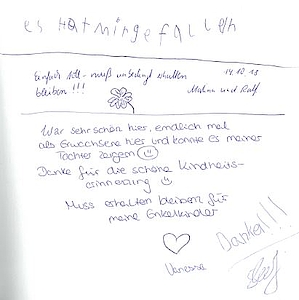 es hat mir gefallen
Einfach toll - muß unbedingt erhalten
bleiben!!!
14.10.13
und Ralf
War sehr schön hier, endlich mal
als Erwachsene hier und konnte es meiner
Tochter zeigen
Danke für die schöne Kindheits-
erinnerung
Muss erhalten bleiben für
meine Enkelkinder
Vanessa
Danke!!!